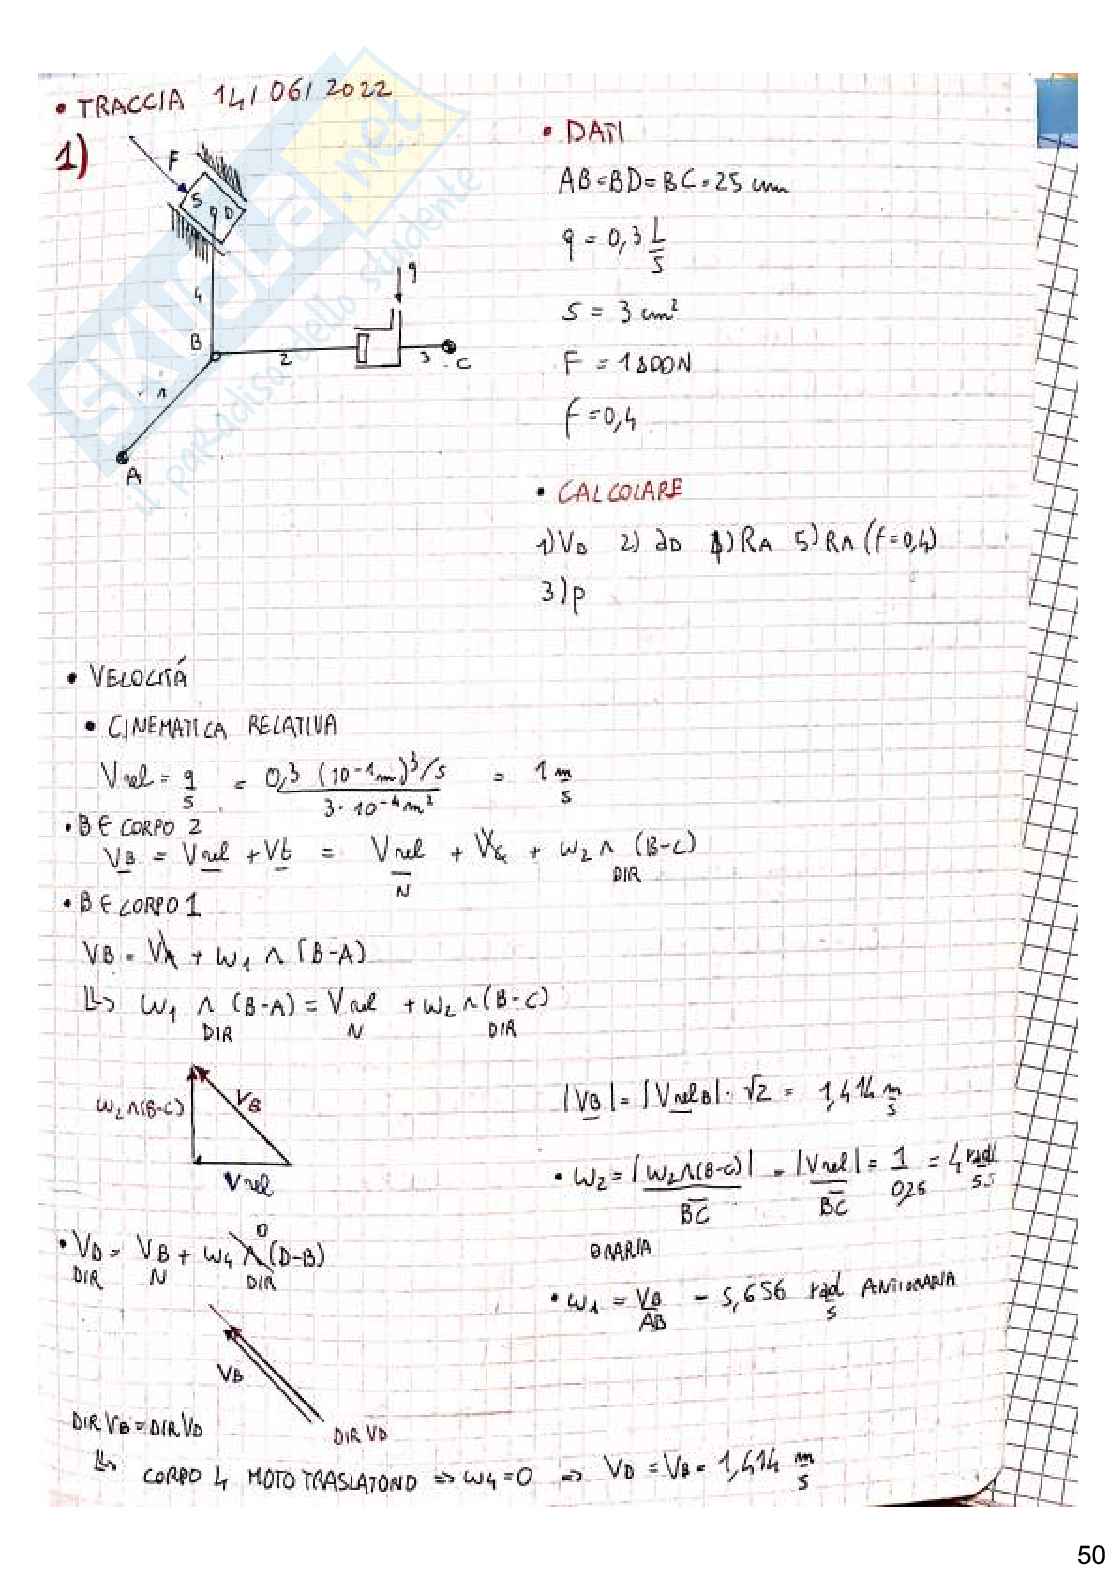 • TRACCIA 14/06/2022
1)
F
S
9 D
4
B
2
9
3
C
1
A
• DATI
AB=BD=BC=25 cm
q = 0,3 L/s
S = 3 cm²
F = 1800N
f = 0,4
• CALCOLARE
1) VD 2) aD 4) RA 5) RA (f=0,4)
3) p
• VELOCITÁ
• CINEMATICA RELATIVA
Vrel = q/s = 0,3 (10-1m)³/s / 3·10-4m² = 1 m/s
• B ∈ CORPO 2
VB = Vrel + Vt = Vrel + Vc + ω2 ∧ (B-C)
N DIR
• B ∈ CORPO 1
VB = VA + ω1 ∧ (B-A)
↳ ω1 ∧ (B-A) = Vrel + ω2 ∧ (B-C)
DIR N DIR
ω2∧(B-C)
VB
Vrel
|VB| = |VrelB| · √2 = 1,414 m/s
• ω2 = |ω2∧(B-C)| / BC = |Vrel| / BC = 1 / 0,25 = 4 rad/s
ORARIA
• VD = VB + ω4 ∧ (D-B)
0
DIR N DIR
• ω1 = VB/AB = 5,656 rad/s ANTIORARIA
VB
DIR VD
DIR VB = DIR VD
↳ CORPO 4 MOTO TRASLATORIO ⇒ ω4=0 ⇒ VD = VB = 1,414 m/s
50
SKUOLA.net
il paradiso dello studente